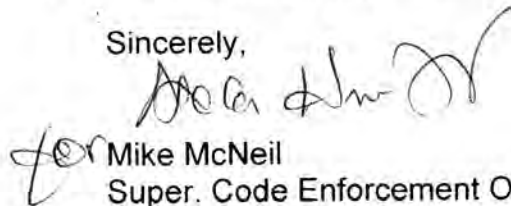 Sincerely,
for Mike McNeil
Super. Code Enforcement O